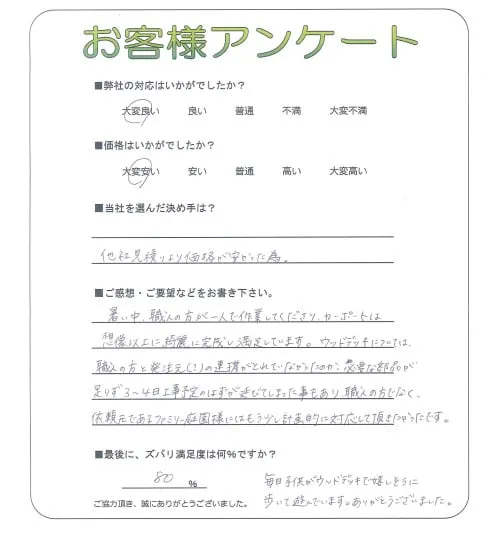 お客様アンケート
■弊社の対応はいかがでしたか?
大変良い 良い 普通 不満 大変不満
■価格はいかがでしたか?
大変安い 安い 普通 高い 大変高い
■当社を選んだ決め手は?
他社見積りより価格が安かった為。
■ご感想・ご要望などをお書き下さい。
暑い中、職人の方が一人で作業してくださり、カーポートは
想像以上に綺麗に完成し満足しています。ウッドデッキについては、
職人の方と発注元(?)の連携がとれていなかったのか、必要な部品が
足りず3〜4日工事予定のはずが延びてしまった事もあり、職人の方でなく、
依頼元であるファミリー庭園様にはもう少し計画的に対応して頂きたかったです。
■最後に、ズバリ満足度は何%ですか?
80 %
毎日子供がウッドデッキで嬉しそうに
歩いて遊んでいます。ありがとうございました。
ご協力頂き、誠にありがとうございました。